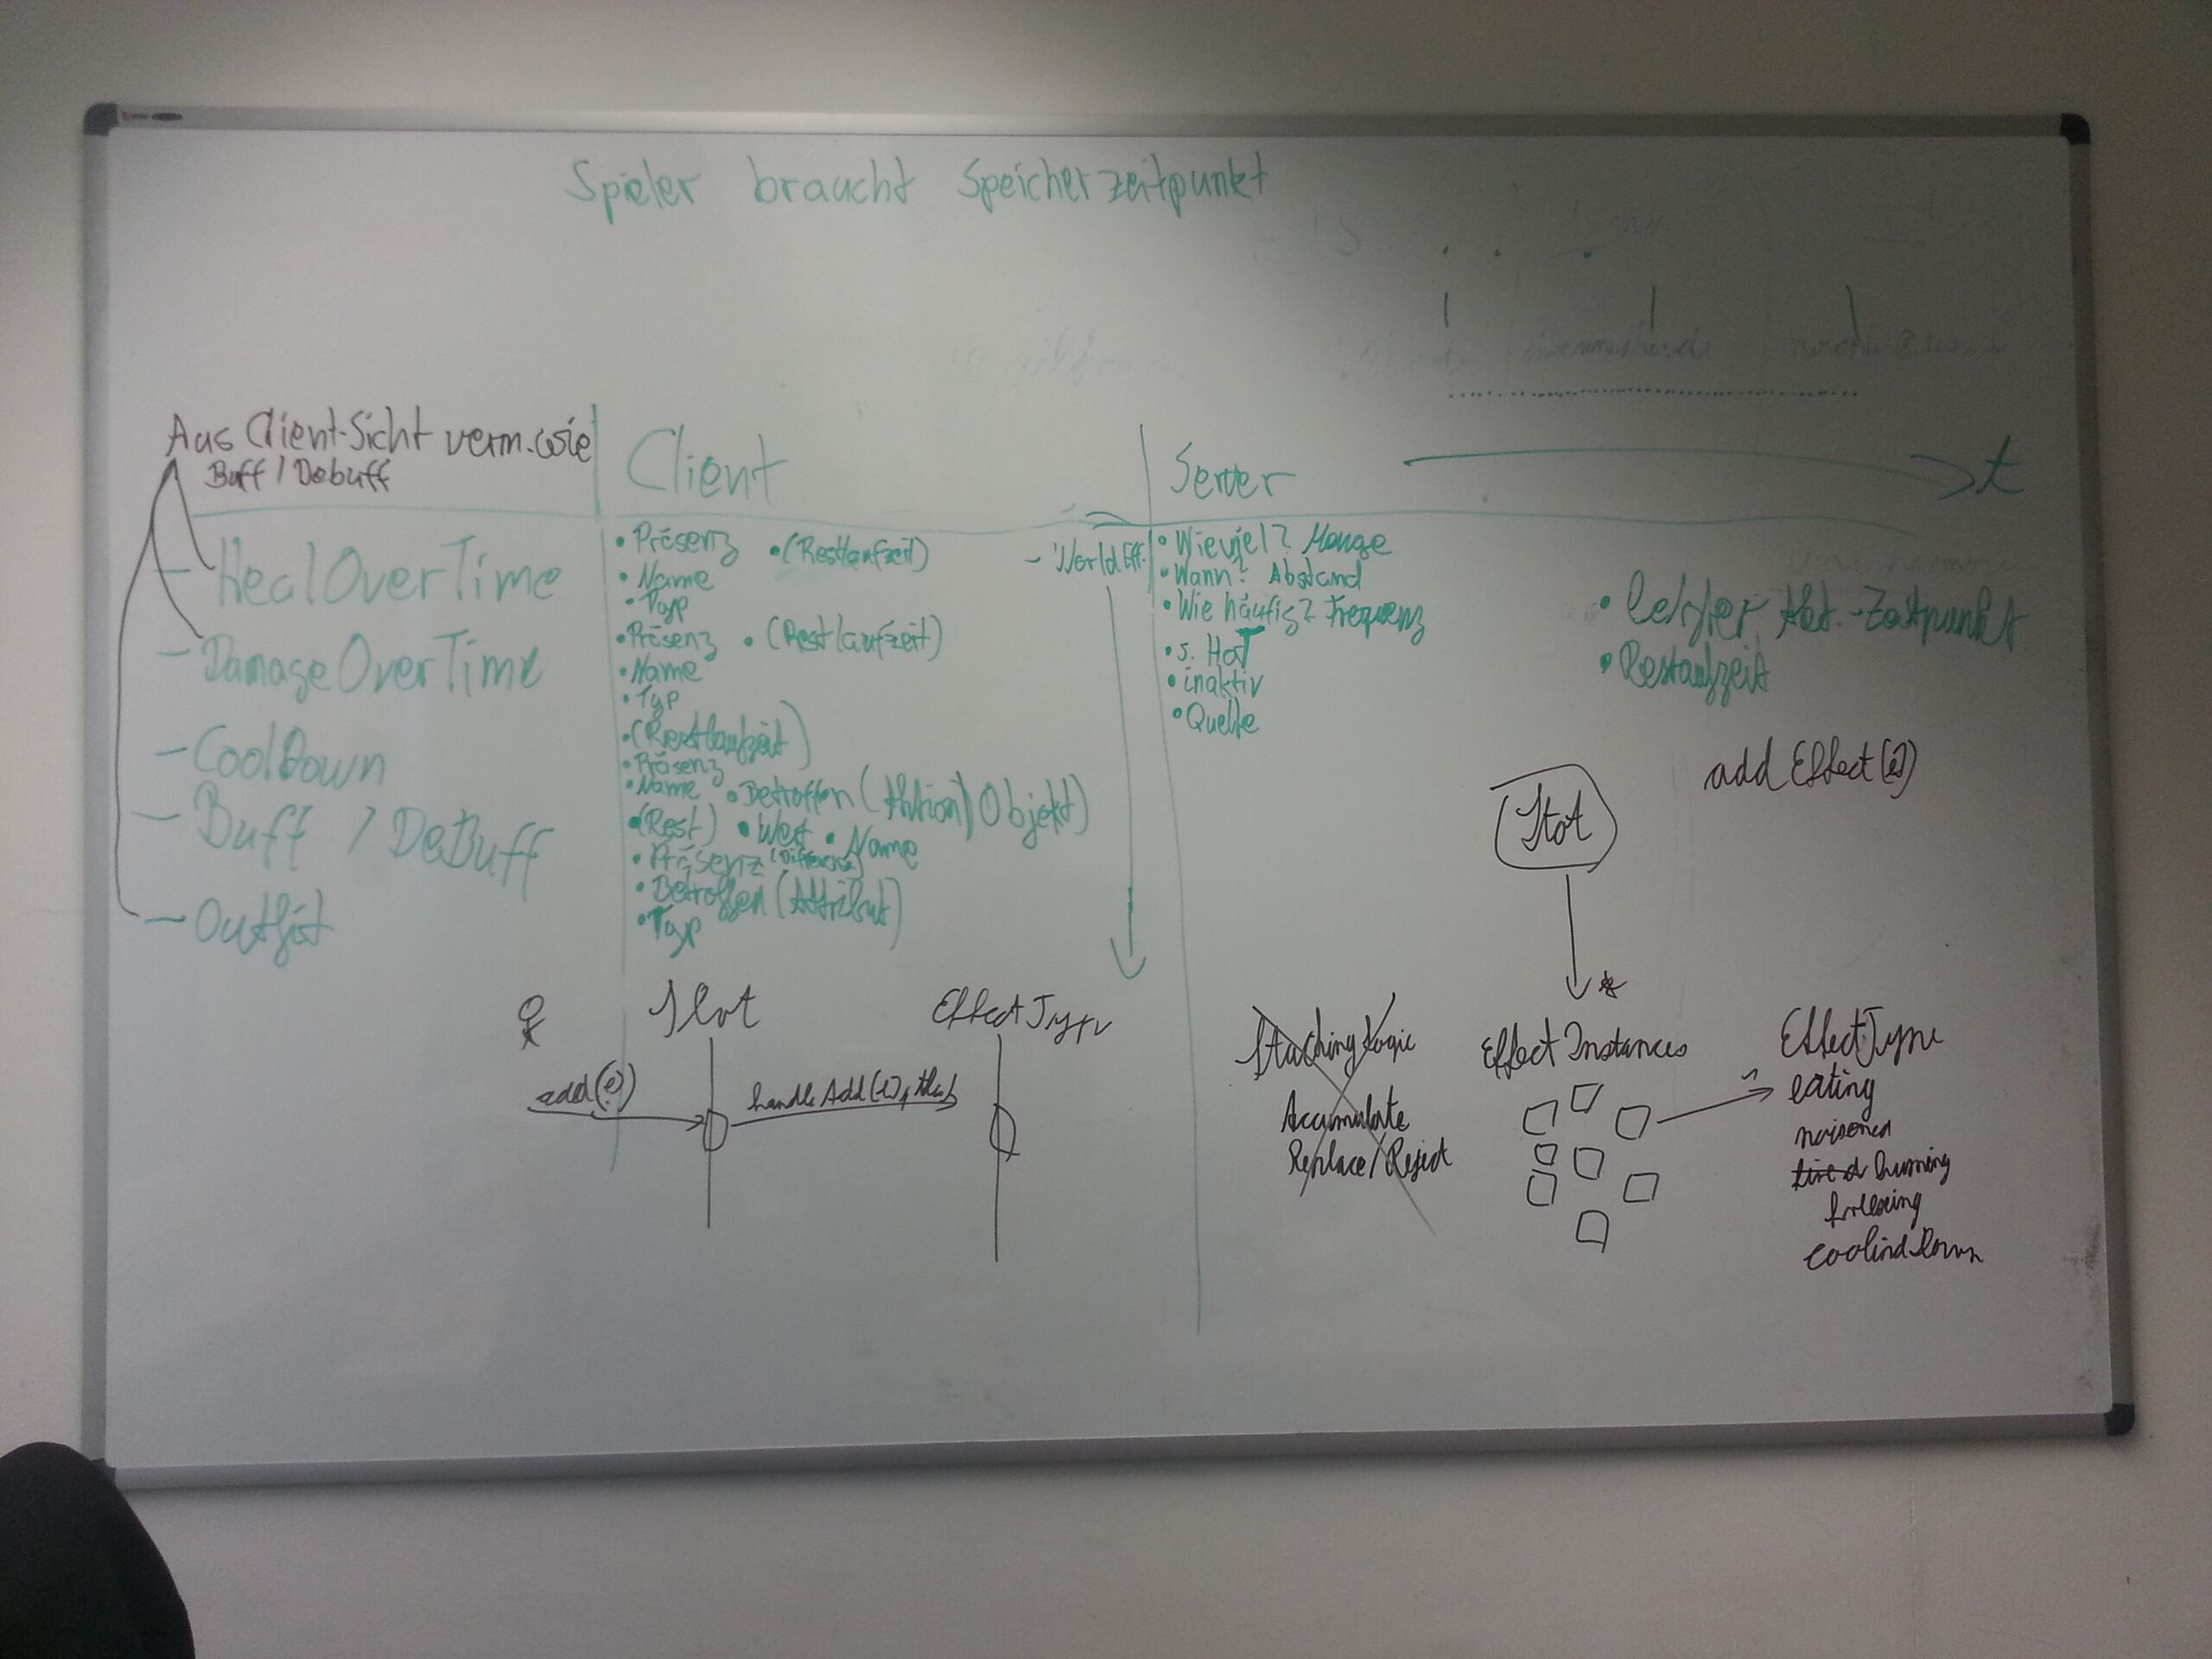 Spieler braucht Speicherzeitpunkt
Aus Client-Sicht verm. wie
Buff / Debuff
Client
Server
t
- HealOverTime
- DamageOverTime
- CoolDown
- Buff / DeBuff
- Outfit
• Präsenz • (Restlaufzeit)
• Name
• Typ
• Präsenz • (Restlaufzeit)
• Name
• Typ
• (Restlaufzeit)
• Präsenz
• Name • Betroffen (Aktion / Objekt)
• (Rest) • Wert • Name
• Präsenz (Differenz)
• Betroffen (Attribut)
• Typ
- World Eff.
• Wieviel? Menge
• Wann? Abstand
• Wie häufig? Frequenz
• s. HoT
• inaktiv
• Quelle
• letzter Akt.-Zeitpunkt
• Restlaufzeit
add Effect(e)
Slot
*
Slot
EffectType
add(e)
handleAdd(e, this)
Stacking Logic
Accumulate
Replace/Reject
Effect Instances
EffectType
eating
poisoned
tired burning
freezing
coolindDown